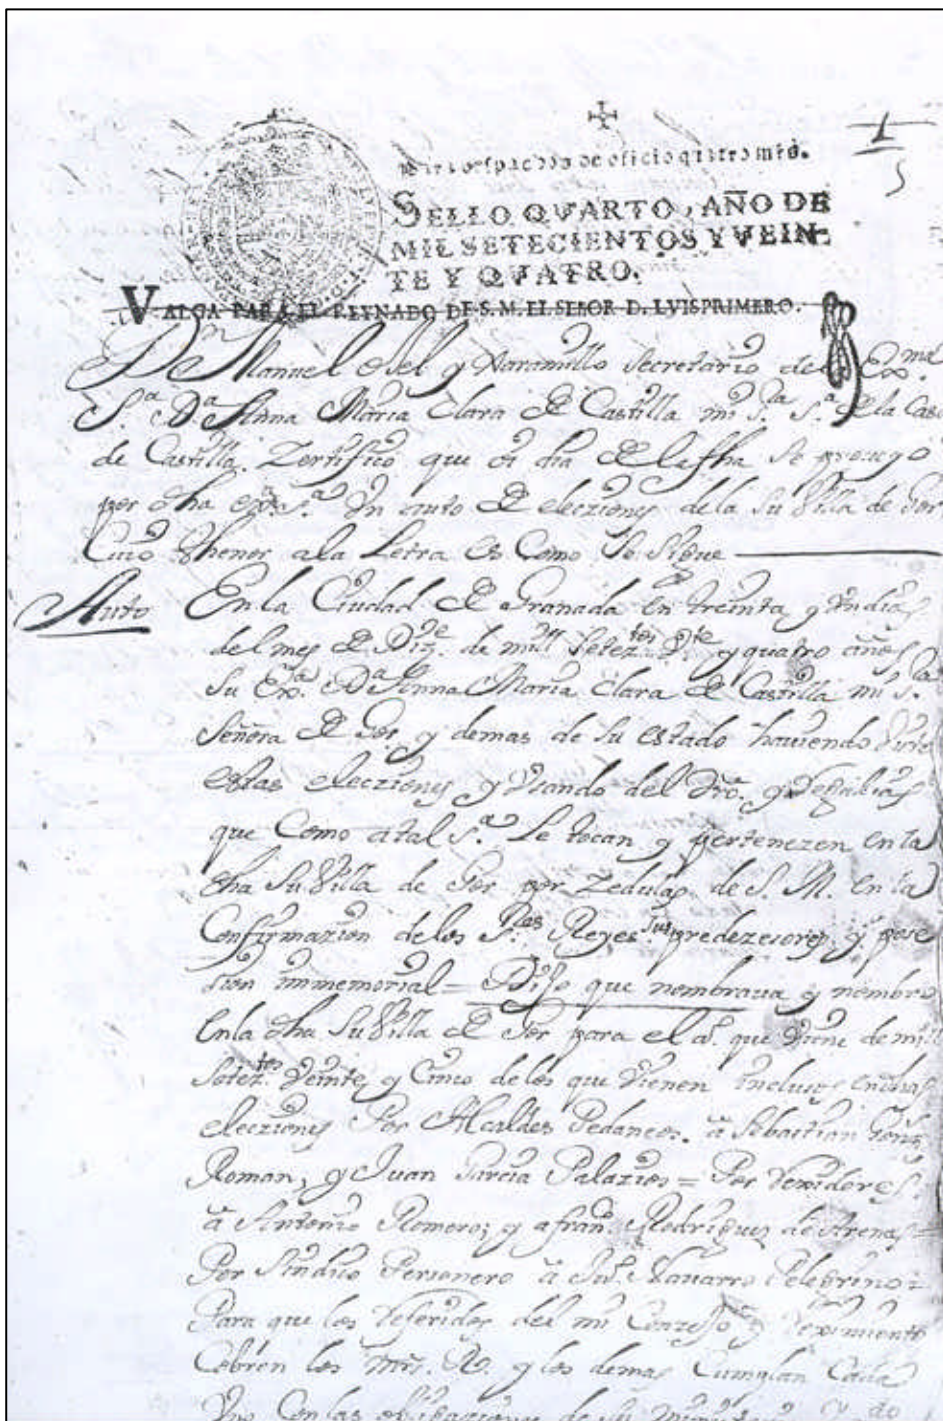 1
Para despachos de oficio quatro mrs.
SELLO QVARTO, AÑO DE
MIL SETECIENTOS Y VEIN-
TE Y QVATRO.
VALGA PARA EL REYNADO DE S. M. EL SEÑOR D. LVIS PRIMERO.
Dn Manuel y Jaramillo Secretario de la Exma
S.ª D.ª Anna Maria Clara de Castilla mi S.ra S.ª de la Cas
de Castilla. Zertifico que oi dia de la fha se proueyo
por dha ex.ª S.ª Un auto de elecziones de la Su Villa de Gor
Cuio thenor a la Letra es Como Se Sigue
Auto En la Ciudad de Granada en treinta y Un dias
del mes de Diz.e de mill Setez.tos V.te y quatro años
Su Ex.ª D.ª Anna Maria Clara de Castilla mi S.ra
Señora de Gor, y demas de Su estado hauiendo Visto
estas elecziones y Usando del Dro. y Regalias
que Como a tal S.ª Le tocan y pertenezen en la
dha Su Villa de Gor por Zedulas de S. M. en la
Confirmazion de los S.res Reyes Sus predezesores, y pose
sion immemorial = Dijo que nombraua y nombro
En la dha Su Villa de Gor para el a.º que Viene de mill
Setez.tos Veinte y Cinco de los que Vienen inclusos en dhas
elecziones Por Alcaldes Pedaneos. a Sebastian
Roman, y Juan Garcia Palazios = Por Rexidores.
a Antonio Romero; y a fran.co Rodriguez de Arenas =
Por Sindico Personero a Ju.º Nauarro Pelegrino =
Para que los Referidos del mi Conzejo y Reximiento
Cobren los mrs. R.s y los demas Cumplan Cada
Uno Con las obligaciones de Su